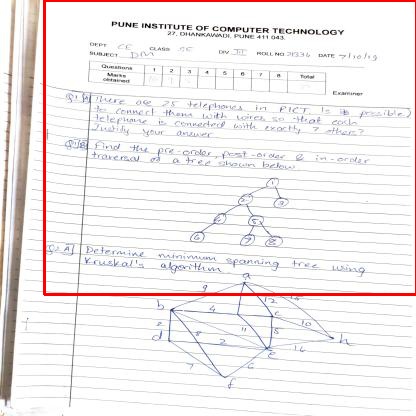 PUNE INSTITUTE OF COMPUTER TECHNOLOGY
27, DHANKAWADI, PUNE 411 043.
DEPT CE CLASS SE DIV III ROLL NO DATE 7/10/19
SUBJECT DM
Questions 1 2 3 4 5 6 7 8 Total
Marks obtained
Examiner
Q1 A] There are 25 telephones in PICT Is it possible
to connect them with wires so that each
telephone is connected with exactly 7 others?
Justify your answer
Q1 B] Find the pre-order, post-order & in-order
traversal of a tree shown below
1
2 3
4 5
6 7 8
Q2 A] Determine minimum spanning tree using
Kruskal's algorithm
a
9 12
b 4 c 10
2 8 11 5 h
d 2 e
7 6
f